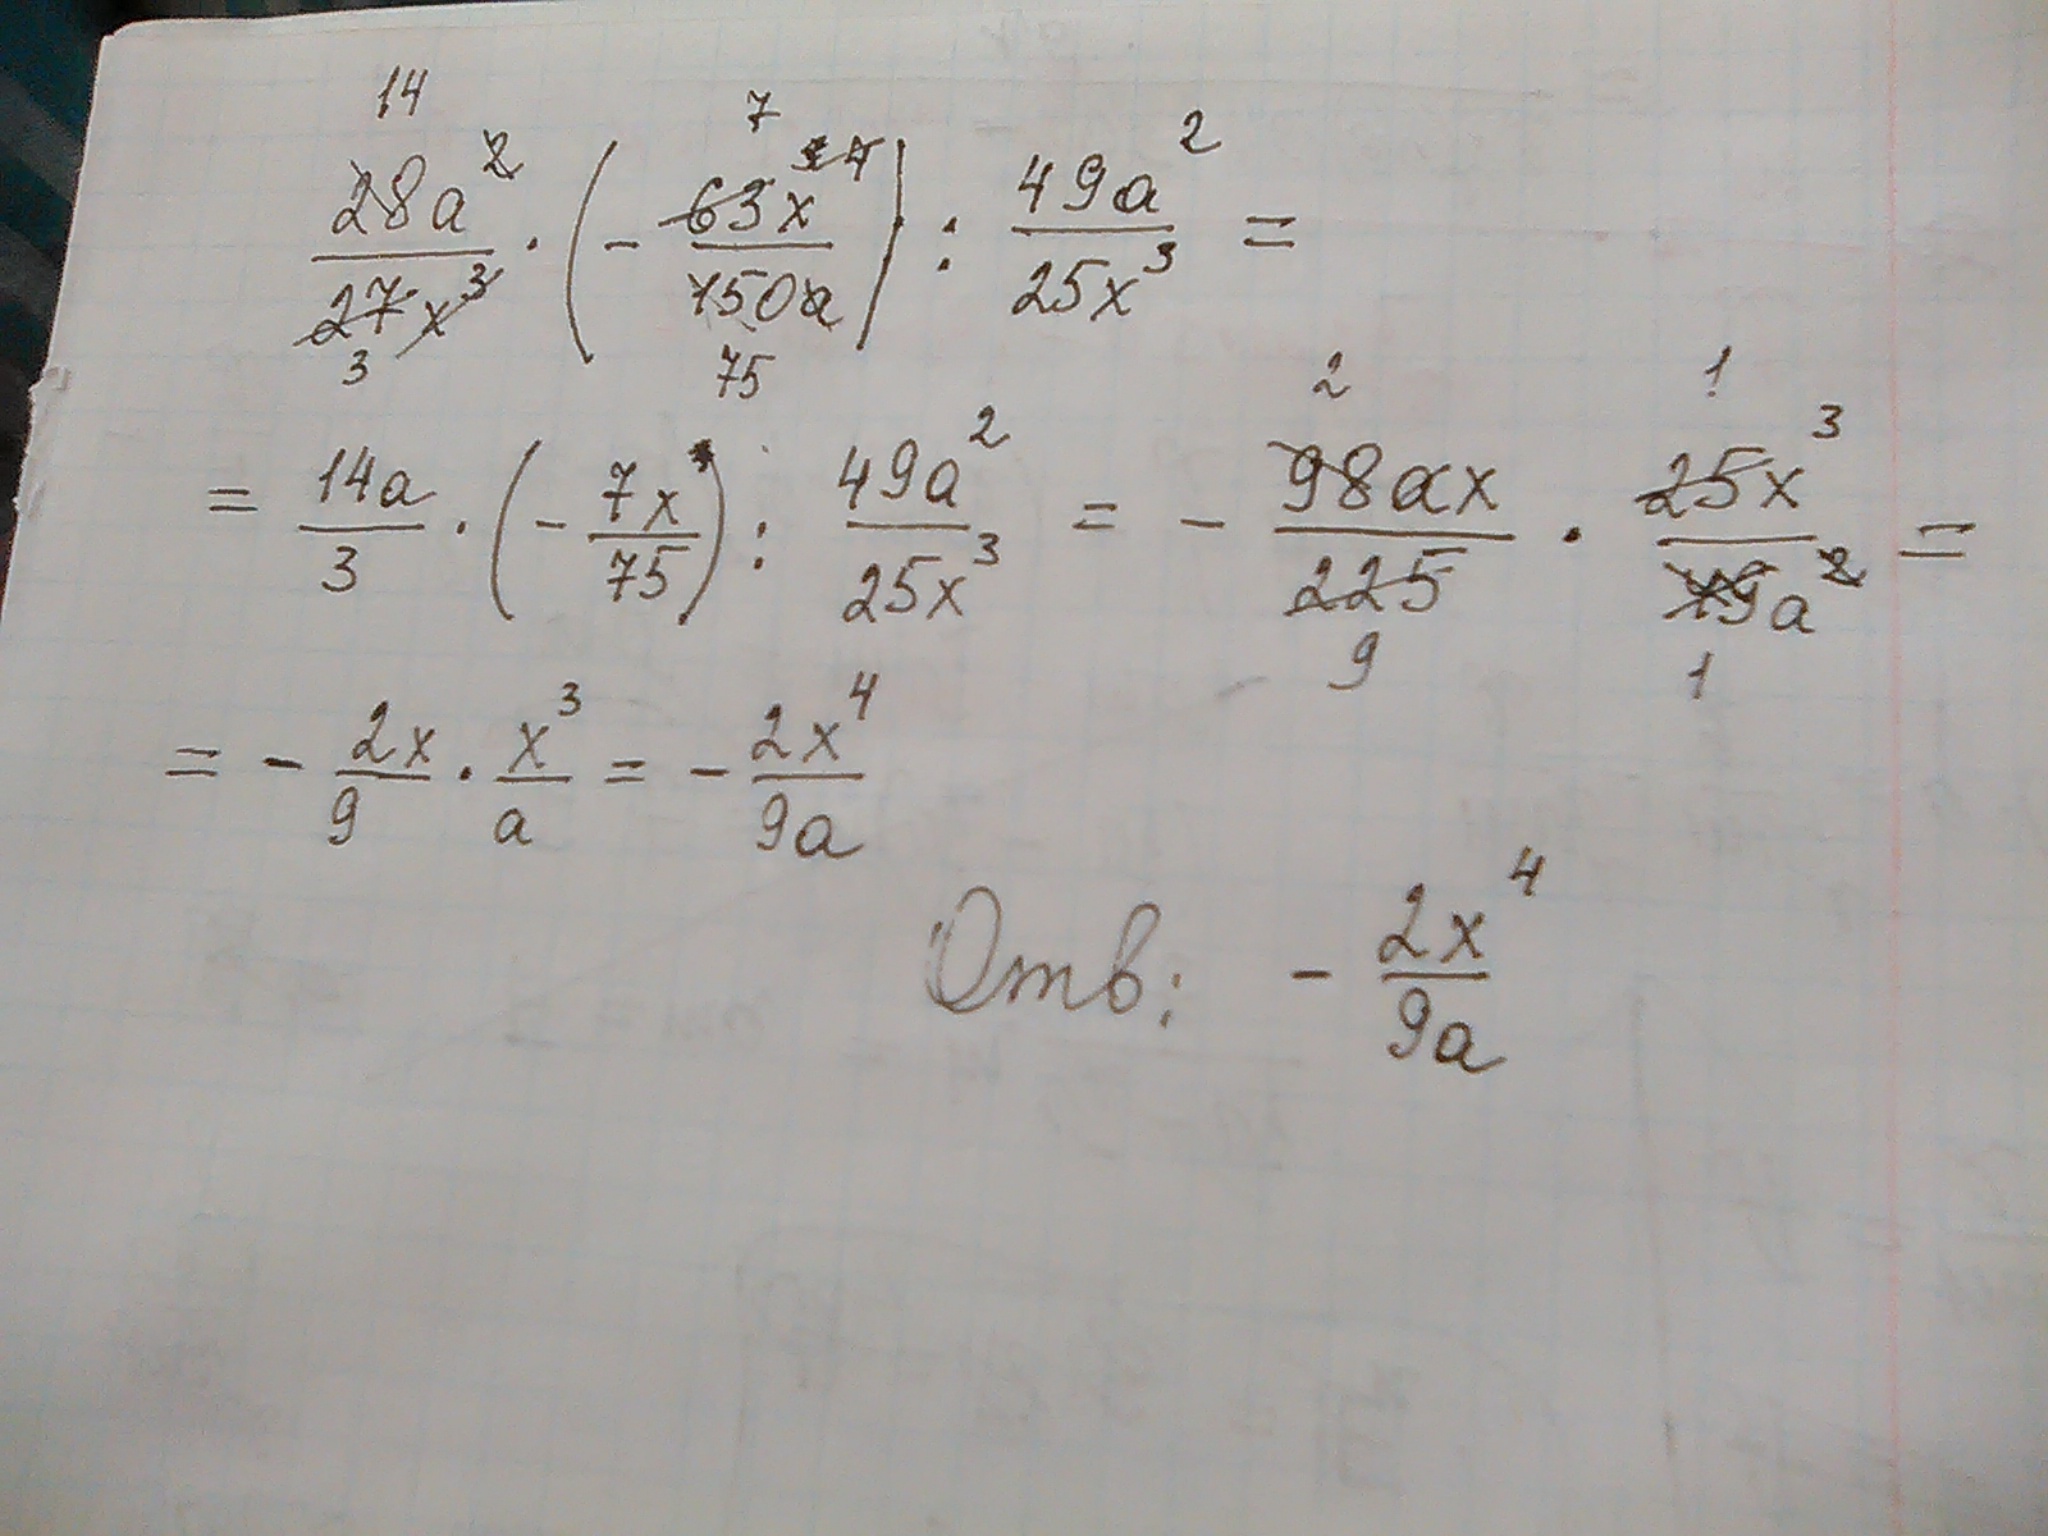 14 7
28a² / 27x³ · (- 63x⁴ / 150a) : 49a² / 25x³ =
3 75
2 1
= 14a / 3 · (- 7x / 75) : 49a² / 25x³ = - 98ax / 225 · 25x³ / 49a² =
9 1
= - 2x / 9 · x³ / a = - 2x⁴ / 9a
Отв: - 2x⁴ / 9a